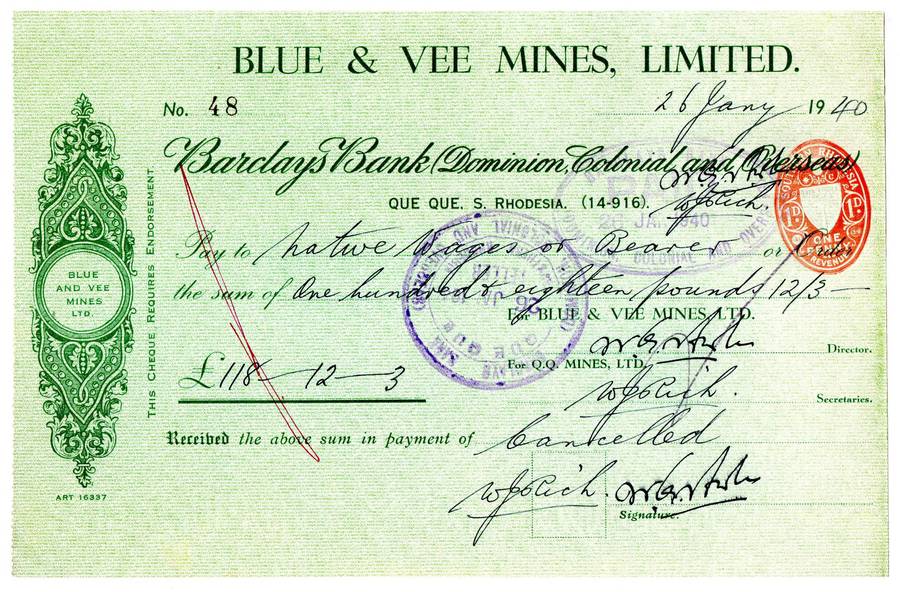 BLUE & VEE MINES, LIMITED.
No. 48
26 Jany 1940
Barclays Bank (Dominion, Colonial and Overseas)
QUE QUE, S. RHODESIA. (14-916).
W J Rich.
SOUTHERN RHODESIA
1D 1D
ONE PENNY
REVENUE
Pay to Native Wages or Bearer or Order
the sum of One hundred & eighteen pounds 12/3
For BLUE & VEE MINES, LTD.
Director.
For Q.Q. MINES, LTD.
£118-12-3
W J Rich.
Secretaries.
Received the above sum in payment of Cancelled
W J Rich.
Signature.
THIS CHEQUE REQUIRES ENDORSEMENT
BLUE
AND VEE
MINES
LTD.
ART 16337